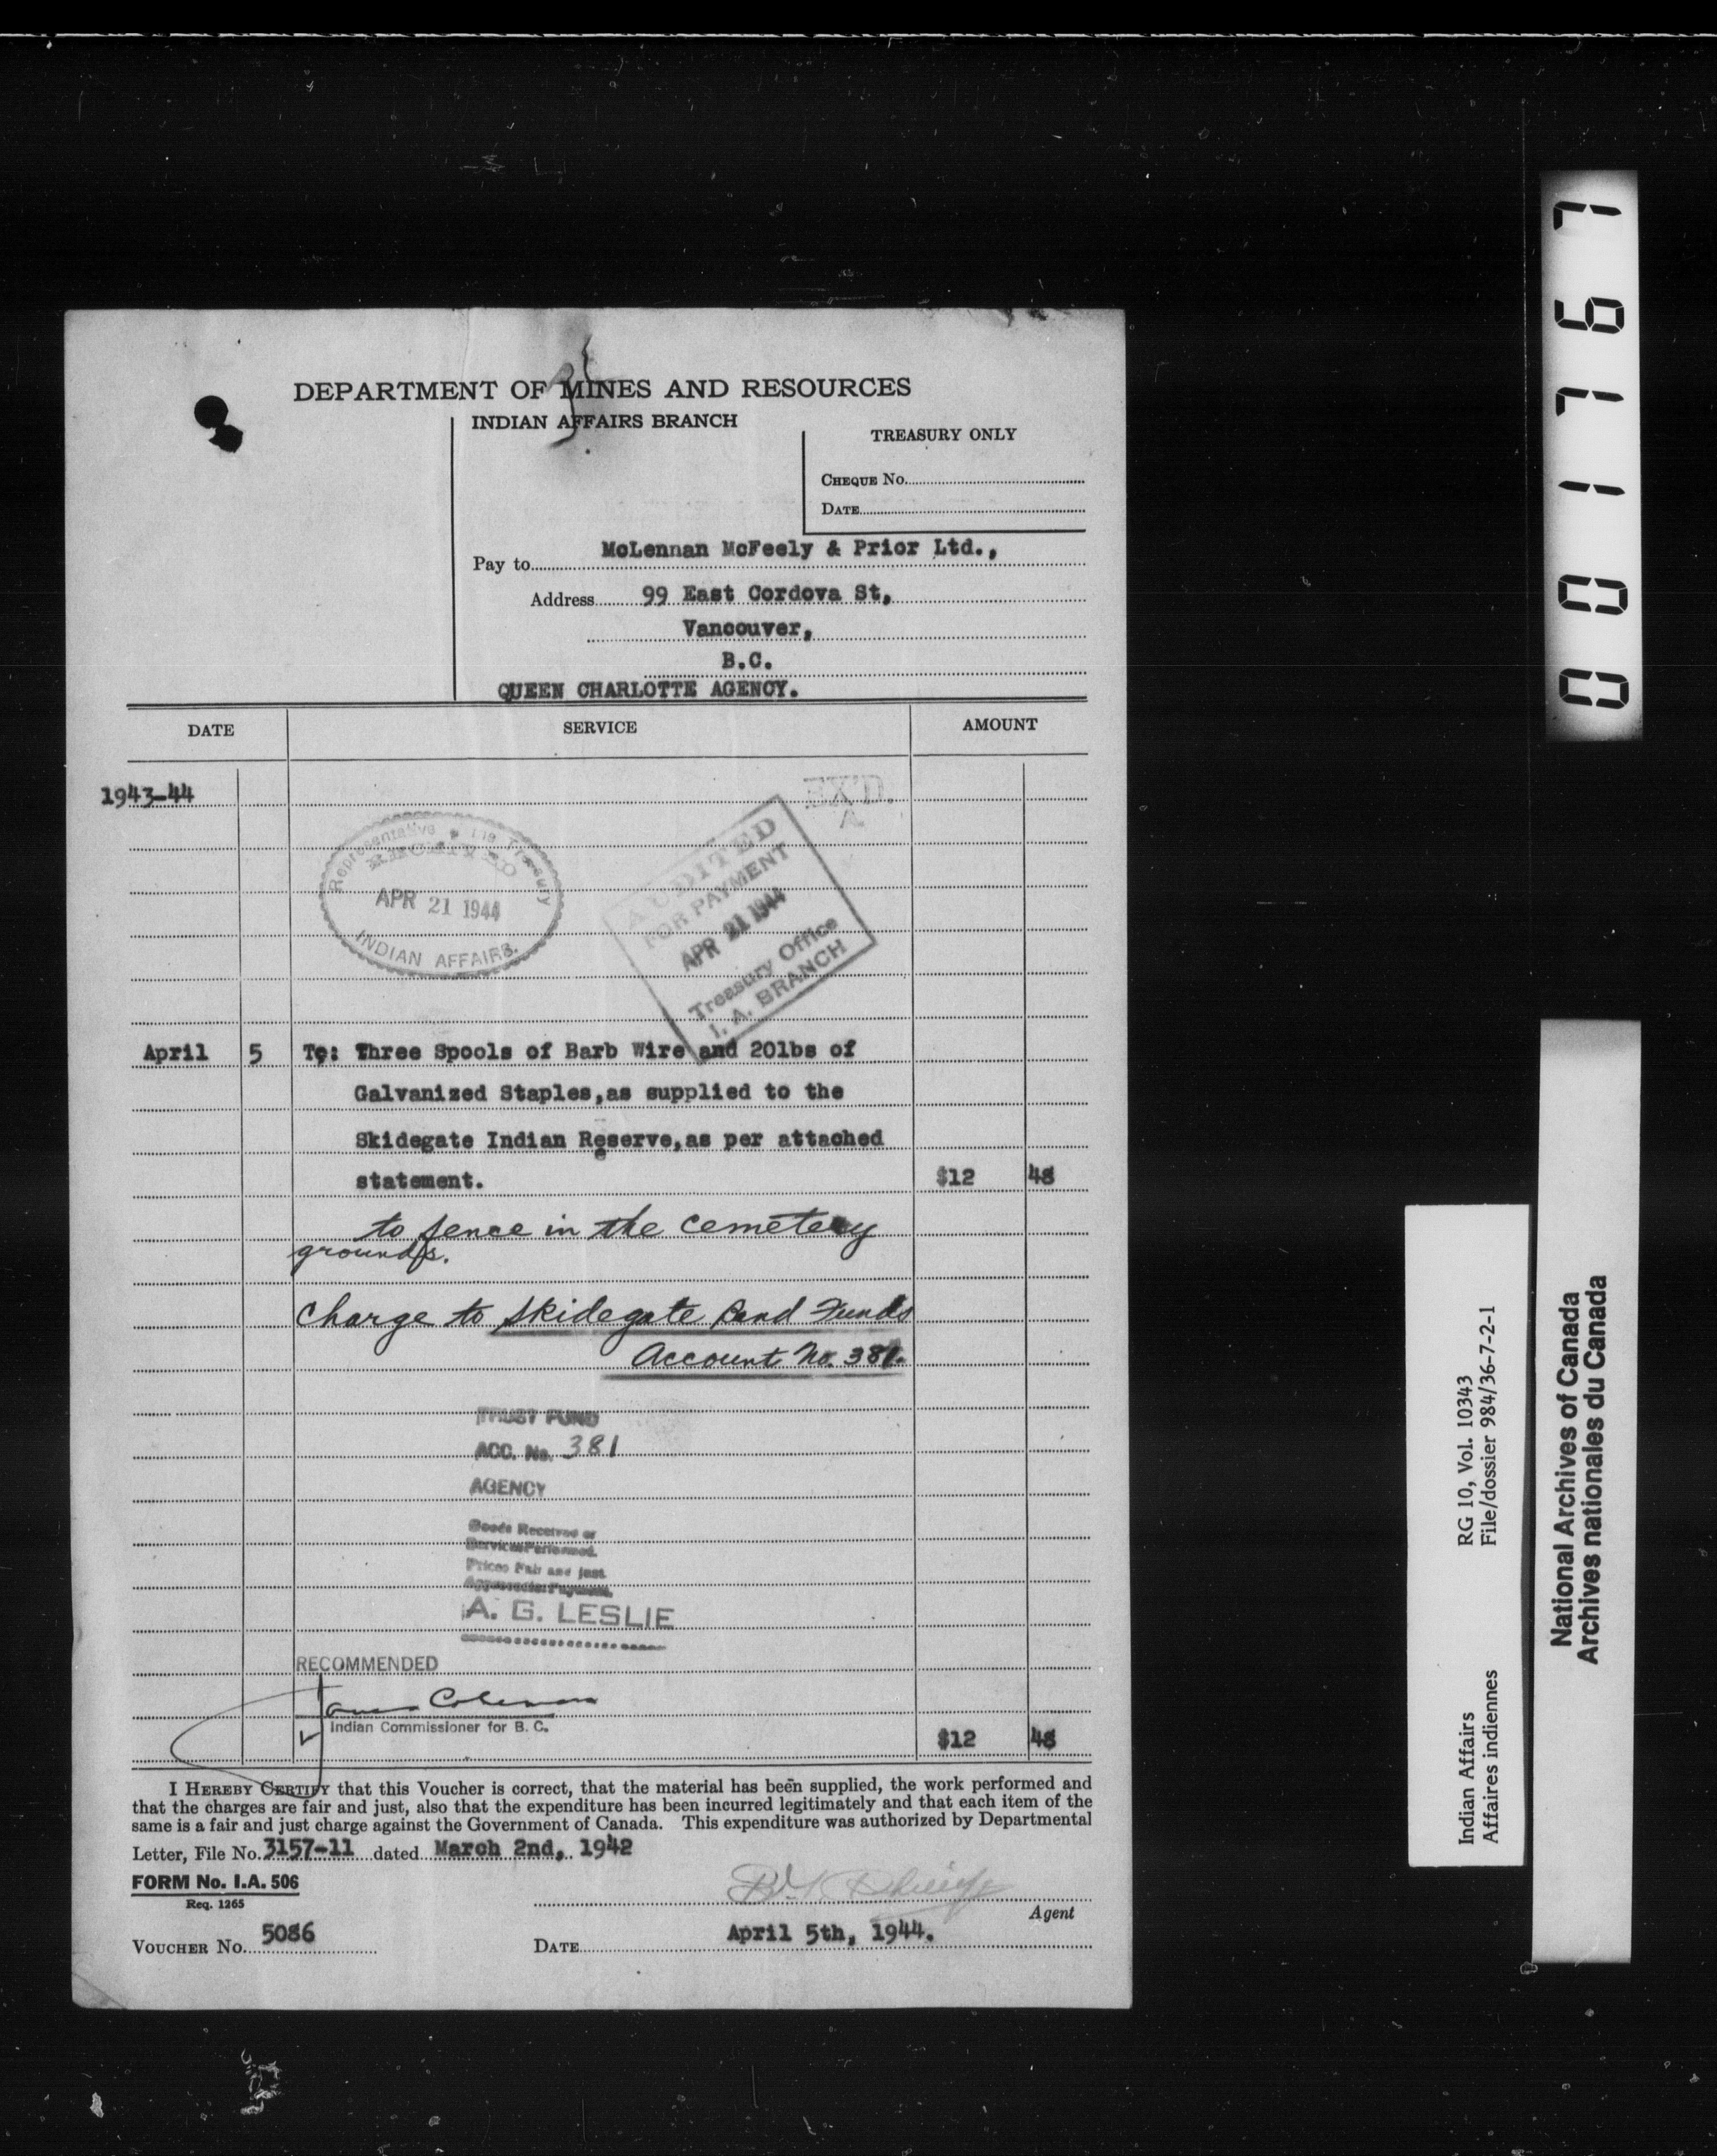 DEPARTMENT OF MINES AND RESOURCES
INDIAN AFFAIRS BRANCH
TREASURY ONLY
CHEQUE No.
DATE
Pay to McLennan McFeely & Prior Ltd.,
Address 99 East Cordova St,
Vancouver,
B.C.
QUEEN CHARLOTTE AGENCY.
DATE SERVICE AMOUNT
1943-44
EX'D.
A
Representative The Treasury
RECEIVED
APR 21 1944
INDIAN AFFAIRS.
AUDITED
FOR PAYMENT
APR 21 1944
Treasury Office
I. A. BRANCH
April 5 To: Three Spools of Barb Wire and 20lbs of
Galvanized Staples,as supplied to the
Skidegate Indian Reserve,as per attached
statement. $12 48
to fence in the cemetery
grounds.
Charge to Skidegate Band Funds
Account No. 381.
TRUST FUND
ACC. No. 381
AGENCY
Goods Received or
Services Performed.
Prices Fair and just
A. G. LESLIE
RECOMMENDED
Indian Commissioner for B. C.
$12 48
I HEREBY CERTIFY that this Voucher is correct, that the material has been supplied, the work performed and
that the charges are fair and just, also that the expenditure has been incurred legitimately and that each item of the
same is a fair and just charge against the Government of Canada. This expenditure was authorized by Departmental
Letter, File No. 3157-11 dated March 2nd, 1942
FORM No. I.A. 506
Req. 1265
Agent
VOUCHER No. 5086
DATE April 5th, 1944.
001767
National Archives of Canada
Archives nationales du Canada
Indian Affairs RG 10, Vol. 10343
Affaires indiennes File/dossier 984/36-7-2-1